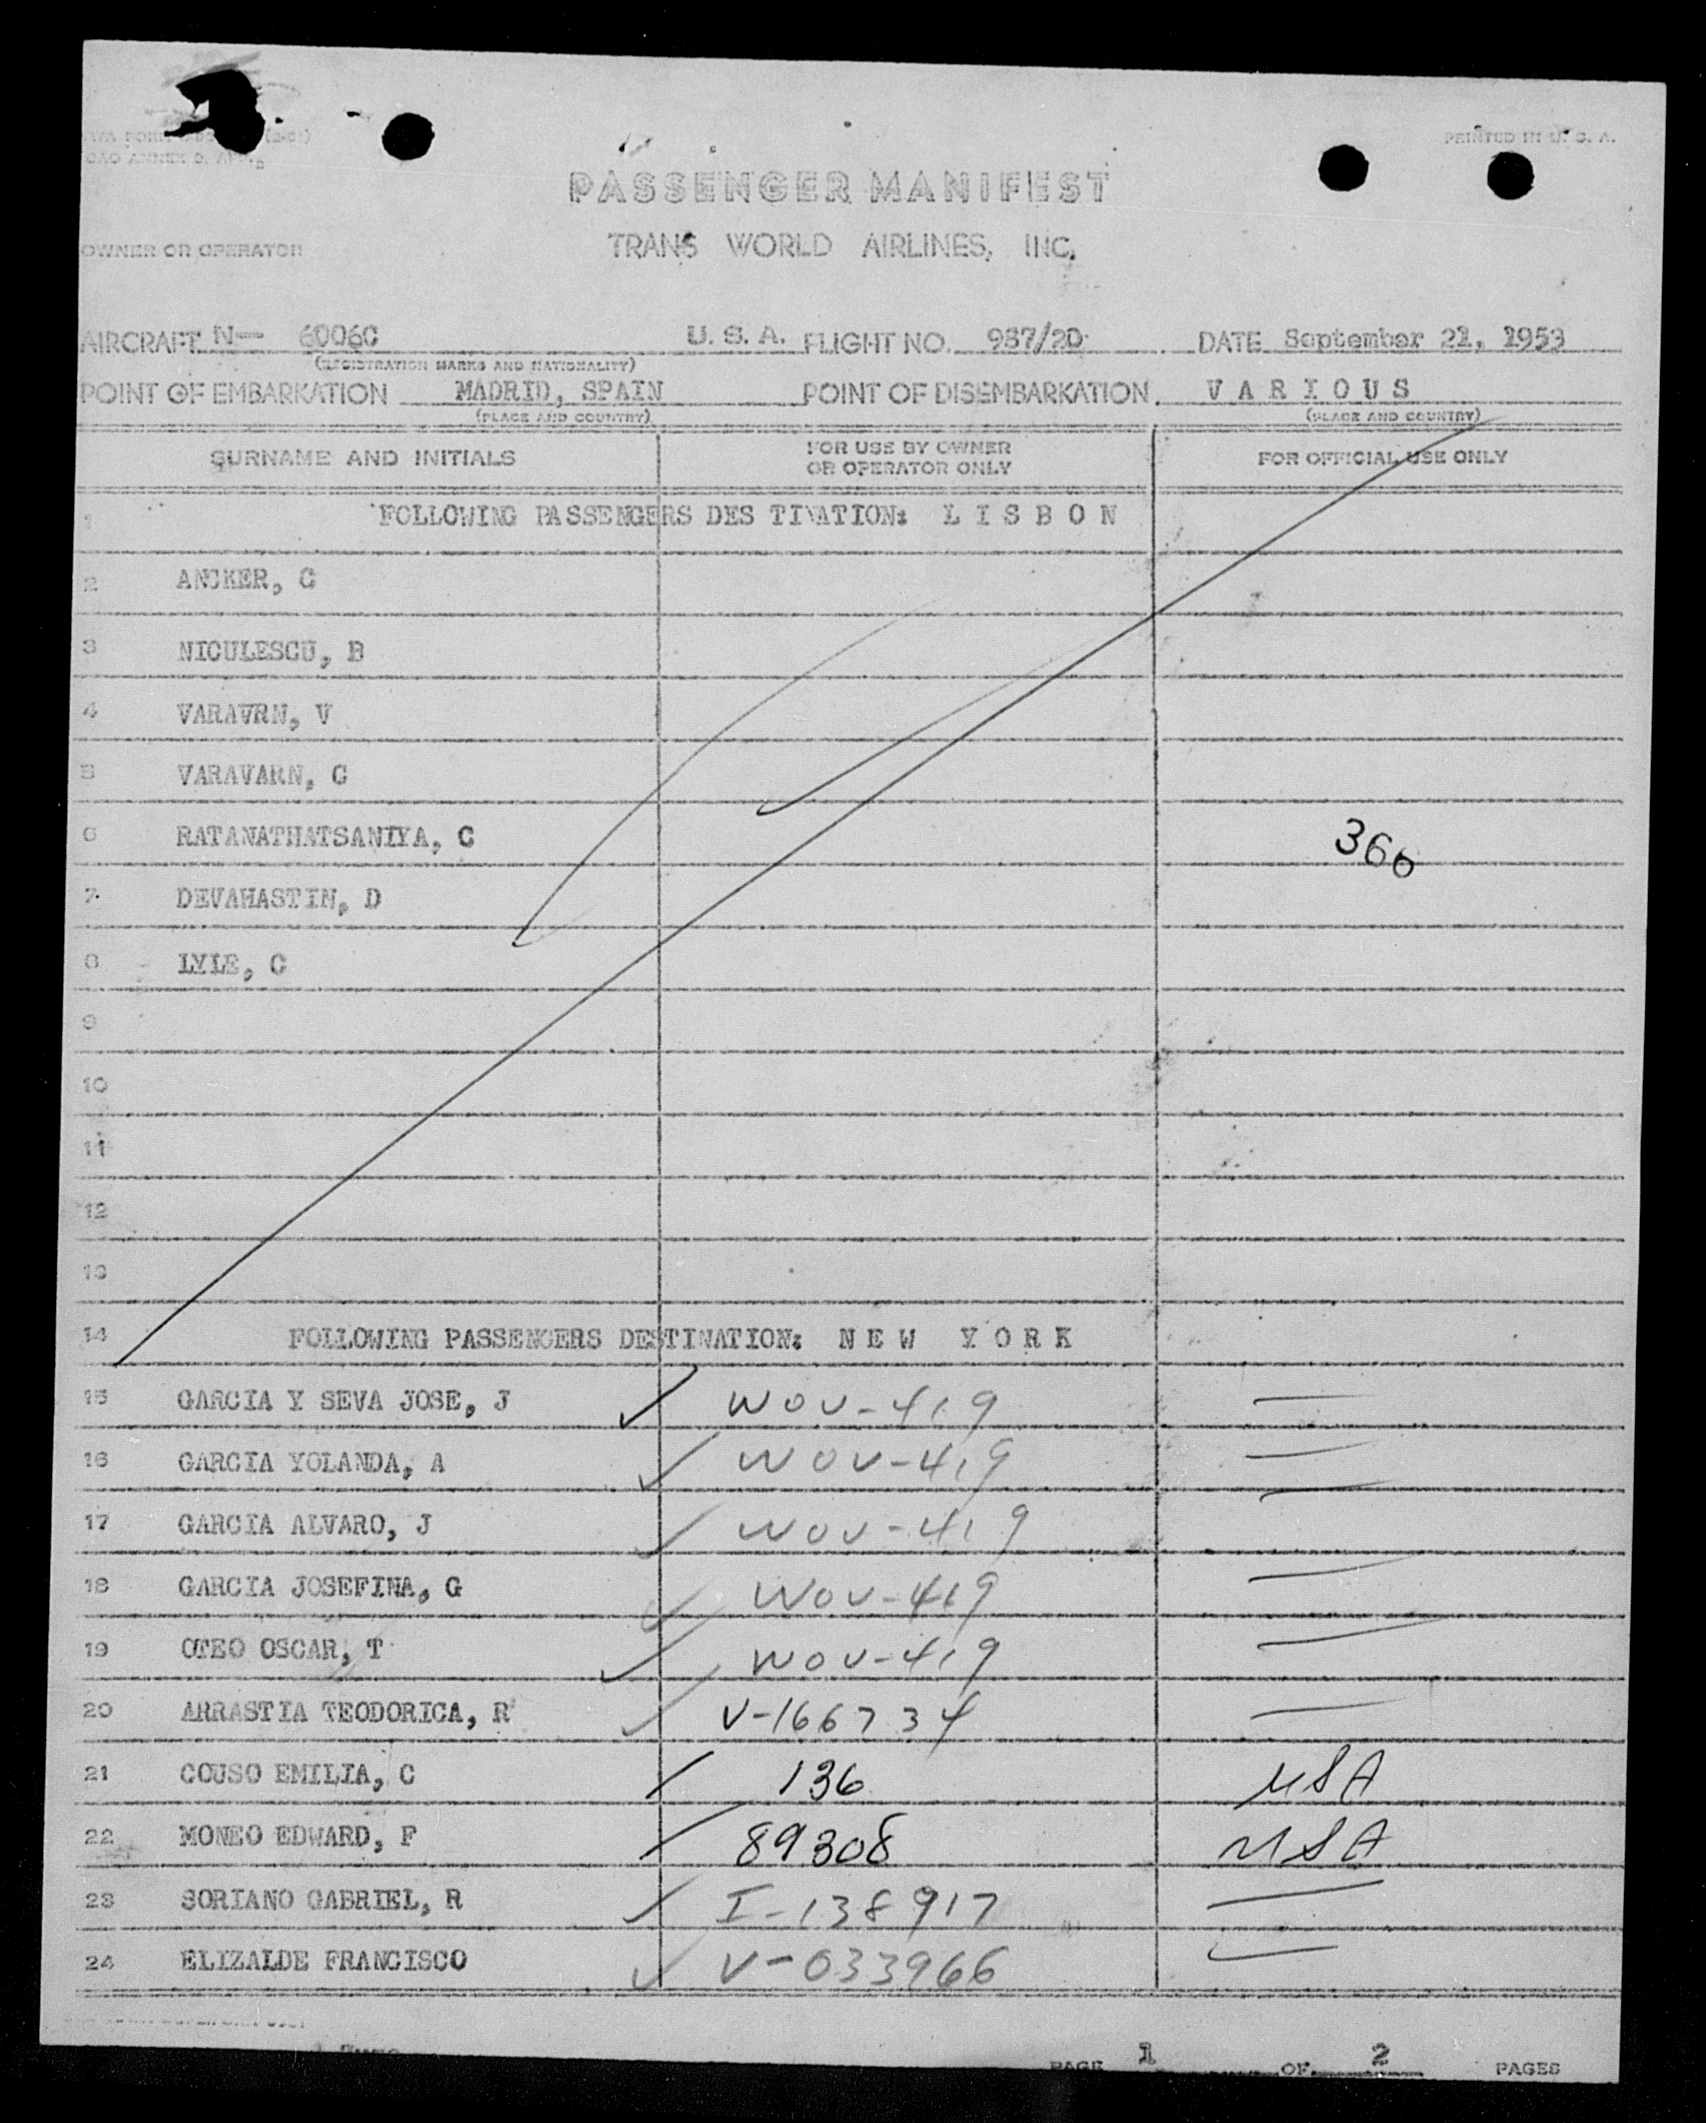 PRINTED IN U. S. A.
PASSENGER MANIFEST
OWNER OR OPERATOR TRANS WORLD AIRLINES, INC.
AIRCRAFT N— 6006C U. S. A. FLIGHT NO. 987/20 DATE September 21, 1953
(REGISTRATION MARKS AND NATIONALITY)
POINT OF EMBARKATION MADRID, SPAIN POINT OF DISEMBARKATION V A R I O U S
(PLACE AND COUNTRY) (PLACE AND COUNTRY)
SURNAME AND INITIALS FOR USE BY OWNER OR OPERATOR ONLY FOR OFFICIAL USE ONLY
1 FOLLOWING PASSENGERS DESTINATION: L I S B O N
2 ANCKER, C
3 NICULESCU, B
4 VARAVRN, V
5 VARAVARN, C
6 RATANATHATSANIYA, C 366
7 DEVAHASTIN, D
8 LYLE, C
9
10
11
12
13
14 FOLLOWING PASSENGERS DESTINATION: N E W Y O R K
15 GARCIA Y SEVA JOSE, J ✓ WOV-419 —
16 GARCIA YOLANDA, A ✓ WOV-419 —
17 GARCIA ALVARO, J ✓ WOV-419 —
18 GARCIA JOSEFINA, G ✓ WOV-419 —
19 OTEO OSCAR, T ✓ WOV-419 —
20 ARRASTIA TEODORICA, R ✓ V-166734 —
21 COUSO EMILIA, C ✓ 136 USA
22 MONEO EDWARD, F ✓ 89308 USA
23 SORIANO GABRIEL, R ✓ I-138917 —
24 ELIZALDE FRANCISCO ✓ V-033966 —
PAGE 1 OF 2 PAGES